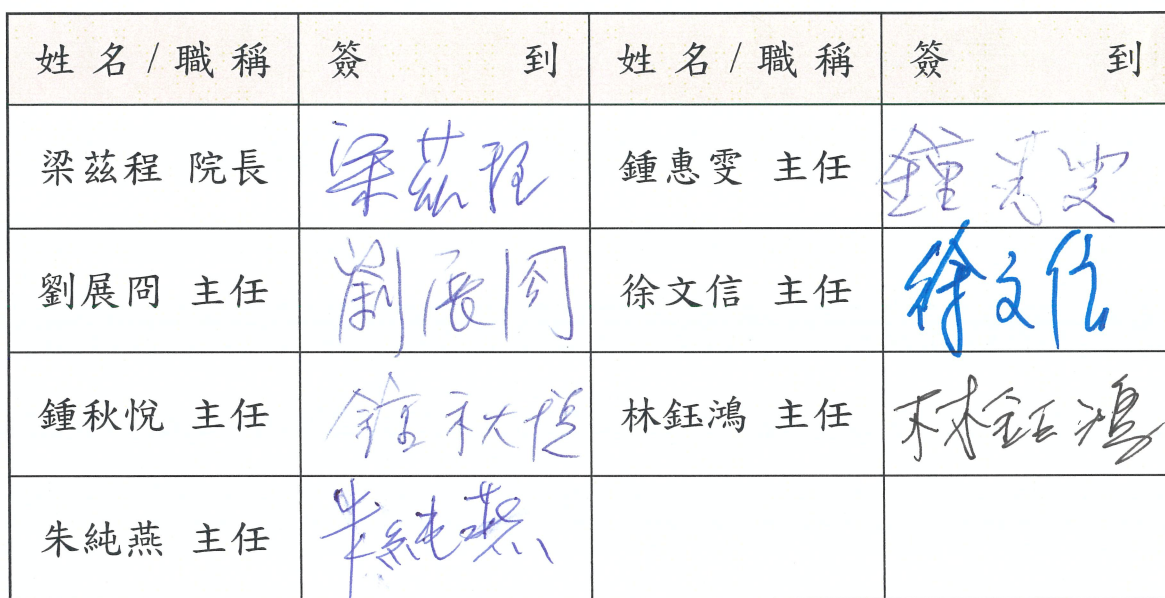 姓名/職稱 簽到 姓名/職稱 簽到
梁茲程 院長 梁茲程 鍾惠雯 主任 鍾惠雯
劉展冏 主任 劉展冏 徐文信 主任 徐文信
鍾秋悅 主任 鍾秋悅 林鈺鴻 主任 林鈺鴻
朱純燕 主任 朱純燕